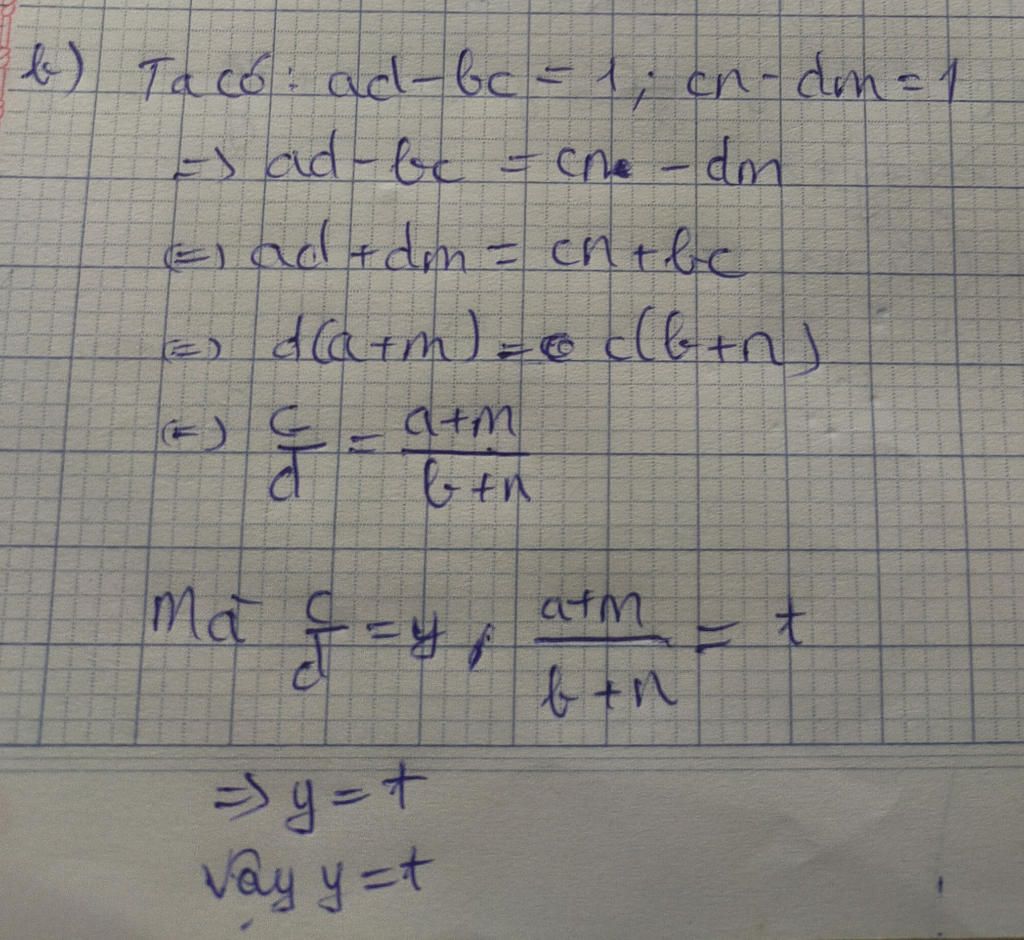 b) Ta có: ad - bc = 1; cn - dm = 1
=> ad - bc = cn - dm
<=> ad + dm = cn + bc
<=> d(a+m) = c(b+n)
<=> c/d = (a+m)/(b+n)
Mà c/d = y, (a+m)/(b+n) = t
=> y = t
Vậy y = t